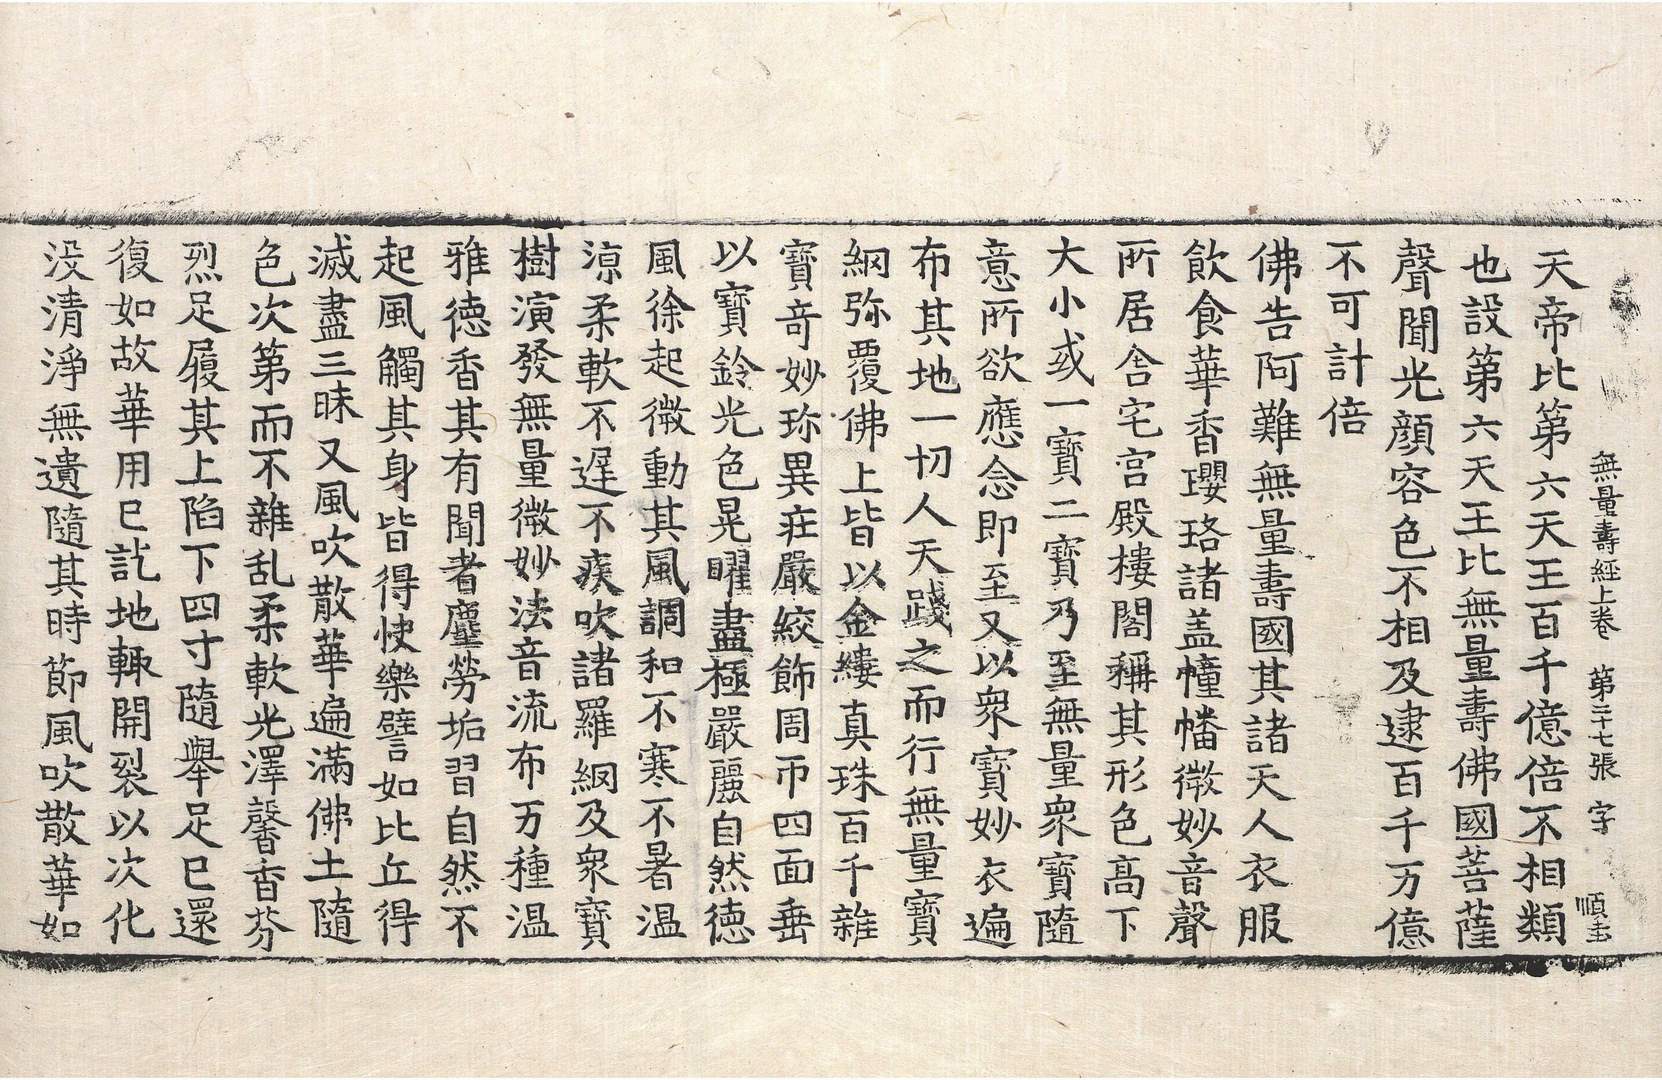 無量壽經上卷　第二十七張　字　順圭
天帝比第六天王百千億倍不相類
也設第六天王比無量壽佛國菩薩
聲聞光顔容色不相及逮百千万億
不可計倍
佛告阿難無量壽國其諸天人衣服
飲食華香瓔珞諸盖幢幡微妙音聲
所居舍宅宫殿樓閣稱其形色高下
大小或一寶二寶乃至無量衆寶隨
意所欲應念即至又以衆寶妙衣遍
布其地一切人天踐之而行無量寶
網弥覆佛上皆以金縷真珠百千雜
寶奇妙珎異莊嚴絞飾周帀四面垂
以寶鈴光色晃曜盡極嚴麗自然徳
風徐起微動其風調和不寒不暑温
涼柔軟不遲不疾吹諸羅網及衆寶
樹演發無量微妙法音流布万種温
雅徳香其有聞者塵勞垢習自然不
起風觸其身皆得快樂譬如比丘得
滅盡三昧又風吹散華遍滿佛土隨
色次第而不雜乱柔軟光澤馨香芬
烈足履其上陷下四寸隨舉足已還
復如故華用已訖地輙開裂以次化
没清淨無遺隨其時節風吹散華如